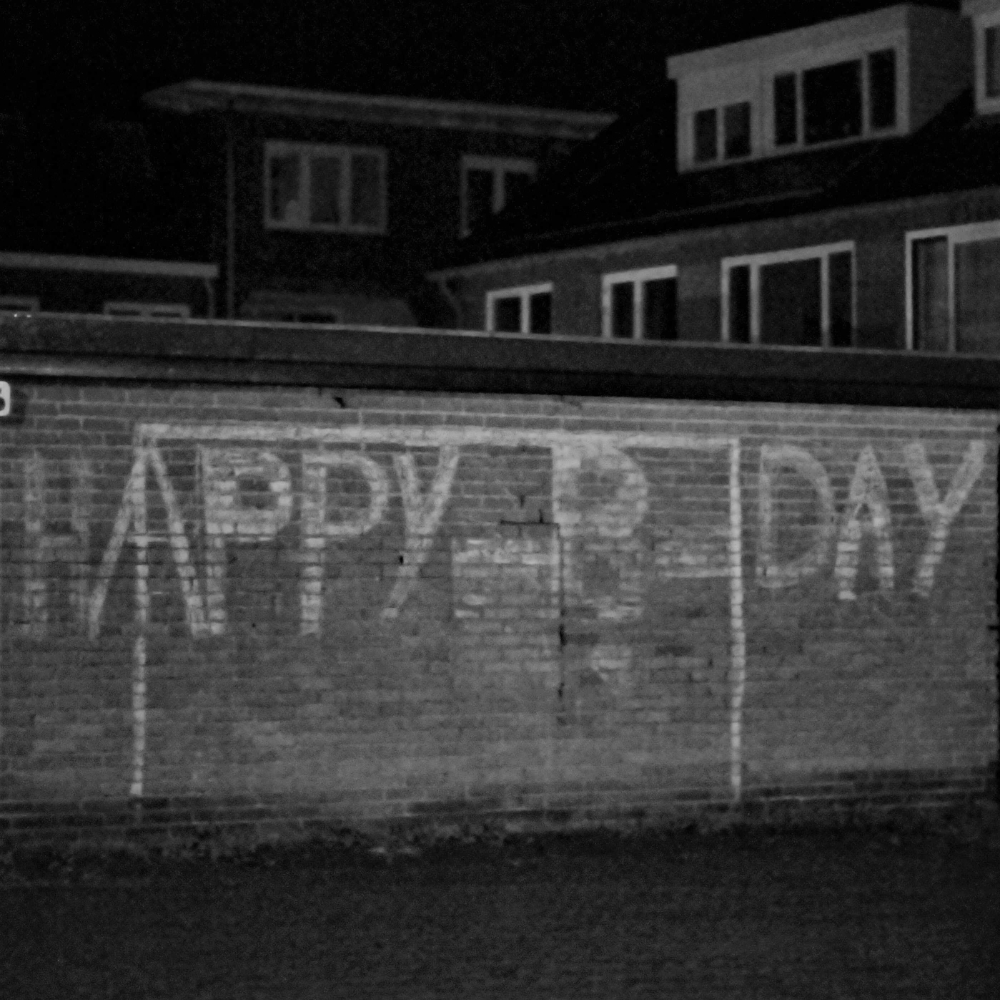 HAPPY B-DAY